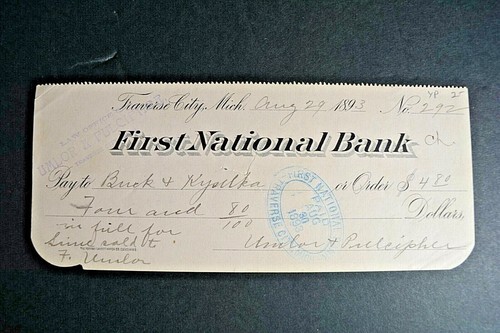 VP 25
Traverse City, Mich. Aug 29 1893 No. 292
First National Bank Ch
Pay to Buck & Kysilka or Order $ 4 80
Four and 80/100 Dollars,
in full for
lime sold to
F. Umlor
Umlor & Pulcipher
FIRST NATIONAL
PAID
AUG
TRAVERSE C